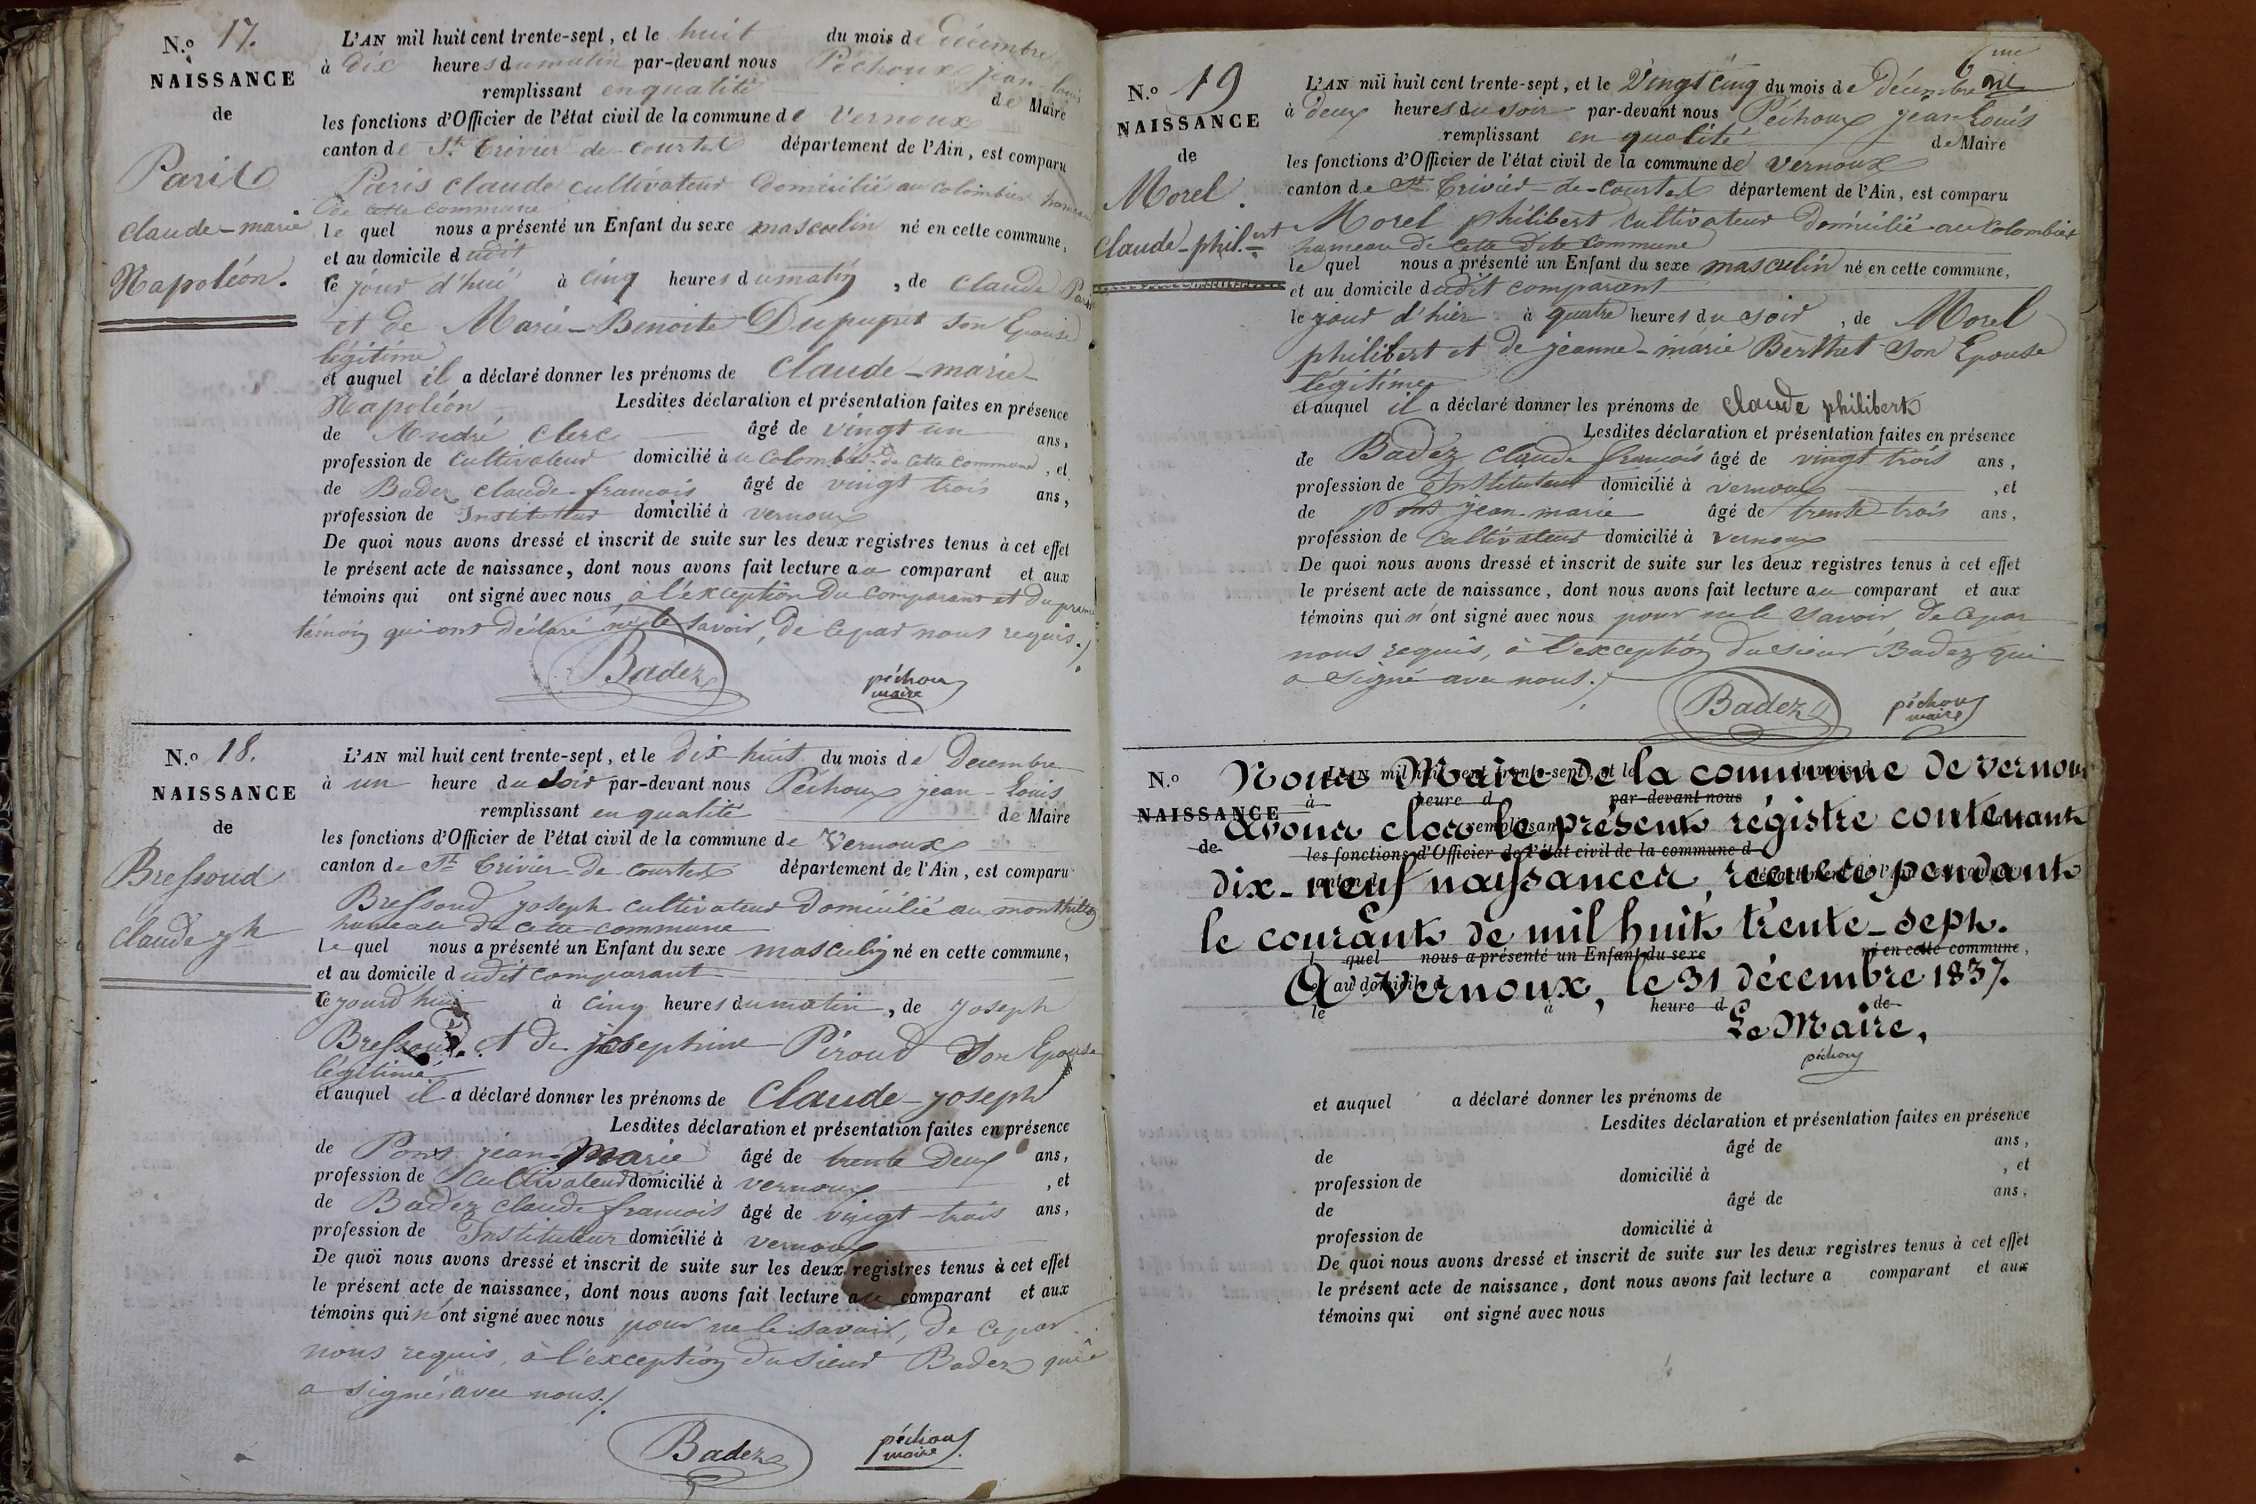 N.o 17.
NAISSANCE
de
Paris
claude-marie
Napoléon.
L'AN mil huit cent trente-sept, et le huit du mois de décembre
à dix heures du matin par-devant nous Péchoux jean-louis
remplissant en qualité de Maire
les fonctions d'Officier de l'état civil de la commune de Vernoux
canton de St. trivier de courtes département de l'Ain, est comparu
Paris claude cultivateur domicilié au colombier hameau
de cette commune
le quel nous a présenté un Enfant du sexe masculin né en cette commune,
et au domicile dudit
ce jour d'hui à cinq heures du matin, de claude Paris
et de Marie-Benoite Dupupet son Epouse
légitime
et auquel il a déclaré donner les prénoms de Claude-marie-
Napoléon Lesdites déclaration et présentation faites en présence
de André clerc âgé de vingt un ans,
profession de cultivateur domicilié au colombier de cette commune, et
de Badez claude-francois âgé de vingt trois ans,
profession de Instituteur domicilié à vernoux
De quoi nous avons dressé et inscrit de suite sur les deux registres tenus à cet effet
le présent acte de naissance, dont nous avons fait lecture au comparant et aux
témoins qui ont signé avec nous à l'exception du comparant et du premier
témoin qui ont déclaré ne le savoir, de ce par nous requis./.
Badez
péchoux
maire
N.o 18.
NAISSANCE
de
Bressoud
claude jh
L'AN mil huit cent trente-sept, et le dix huit du mois de Decembre
à un heure du soir par-devant nous Péchoux jean-Louis
remplissant en qualité de Maire
les fonctions d'Officier de l'état civil de la commune de Vernoux
canton de St. trivier de courtes département de l'Ain, est comparu
Bressoud joseph cultivateur domicilié au
hameau de cette commune
le quel nous a présenté un Enfant du sexe masculin né en cette commune,
et au domicile dudit comparant
ce jourd'hui à cinq heures du matin, de joseph
Bressoud. et de josephine Piroud son Epouse
légitime
et auquel il a déclaré donner les prénoms de Claude-joseph
Lesdites déclaration et présentation faites en présence
de Pons jean-marie âgé de trente deux ans,
profession de Cultivateur domicilié à vernoux, et
de Badez claude francois âgé de vingt-trois ans,
profession de Instituteur domicilié à vernoux
De quoi nous avons dressé et inscrit de suite sur les deux registres tenus à cet effet
le présent acte de naissance, dont nous avons fait lecture au comparant et aux
témoins qui n'ont signé avec nous pour ne le savoir, de ce par
nous requis, à l'exception du sieur Badez qui
a signé avec nous./.
Badez
péchoux
maire
6me
N.o 19
NAISSANCE
de
Morel.
claude-phil.ert
L'AN mil huit cent trente-sept, et le Vingt cinq du mois de décembre
à deux heures du soir par-devant nous Péchoux jean Louis
remplissant en qualité de Maire
les fonctions d'Officier de l'état civil de la commune de vernoux
canton de St. trivier-de-courtes département de l'Ain, est comparu
Morel philibert cultivateur domicilié au colombier
hameau de cette dite commune
le quel nous a présenté un Enfant du sexe masculin né en cette commune,
et au domicile dudit comparant
le jour d'hier à quatre heures du soir, de Morel
philibert et de jeanne-marie Berthet son Epouse
légitime
et auquel il a déclaré donner les prénoms de claude philibert
Lesdites déclaration et présentation faites en présence
de Badez claude francois âgé de vingt trois ans,
profession de Instituteur domicilié à vernoux, et
de pons jean-marie âgé de trente-trois ans,
profession de Cultivateur domicilié à vernoux
De quoi nous avons dressé et inscrit de suite sur les deux registres tenus à cet effet
le présent acte de naissance, dont nous avons fait lecture au comparant et aux
témoins qui n'ont signé avec nous pour ne le savoir, de ce par
nous requis, à l'exception du sieur Badez qui
a signé avec nous./.
Badez
péchoux
maire
N.o
NAISSANCE
de
L'AN mil huit cent trente-sept, et le
Nous Maire de la commune de vernoux
à heure d par-devant nous
avons clos le présent régistre contenant
remplissant
les fonctions d'Officier de l'état civil de la commune d
dix-neuf naissances recues pendant
le courant de mil huit trente-sept.
l quel nous a présenté un Enfant du sexe né en cette commune,
et au domicile d
A Vernoux, le 31 décembre 1837.
le à heure d de
Le Maire,
péchoux
et auquel a déclaré donner les prénoms de
Lesdites déclaration et présentation faites en présence
de âgé de ans,
profession de domicilié à , et
de âgé de ans,
profession de domicilié à
De quoi nous avons dressé et inscrit de suite sur les deux registres tenus à cet effet
le présent acte de naissance, dont nous avons fait lecture a comparant et aux
témoins qui ont signé avec nous